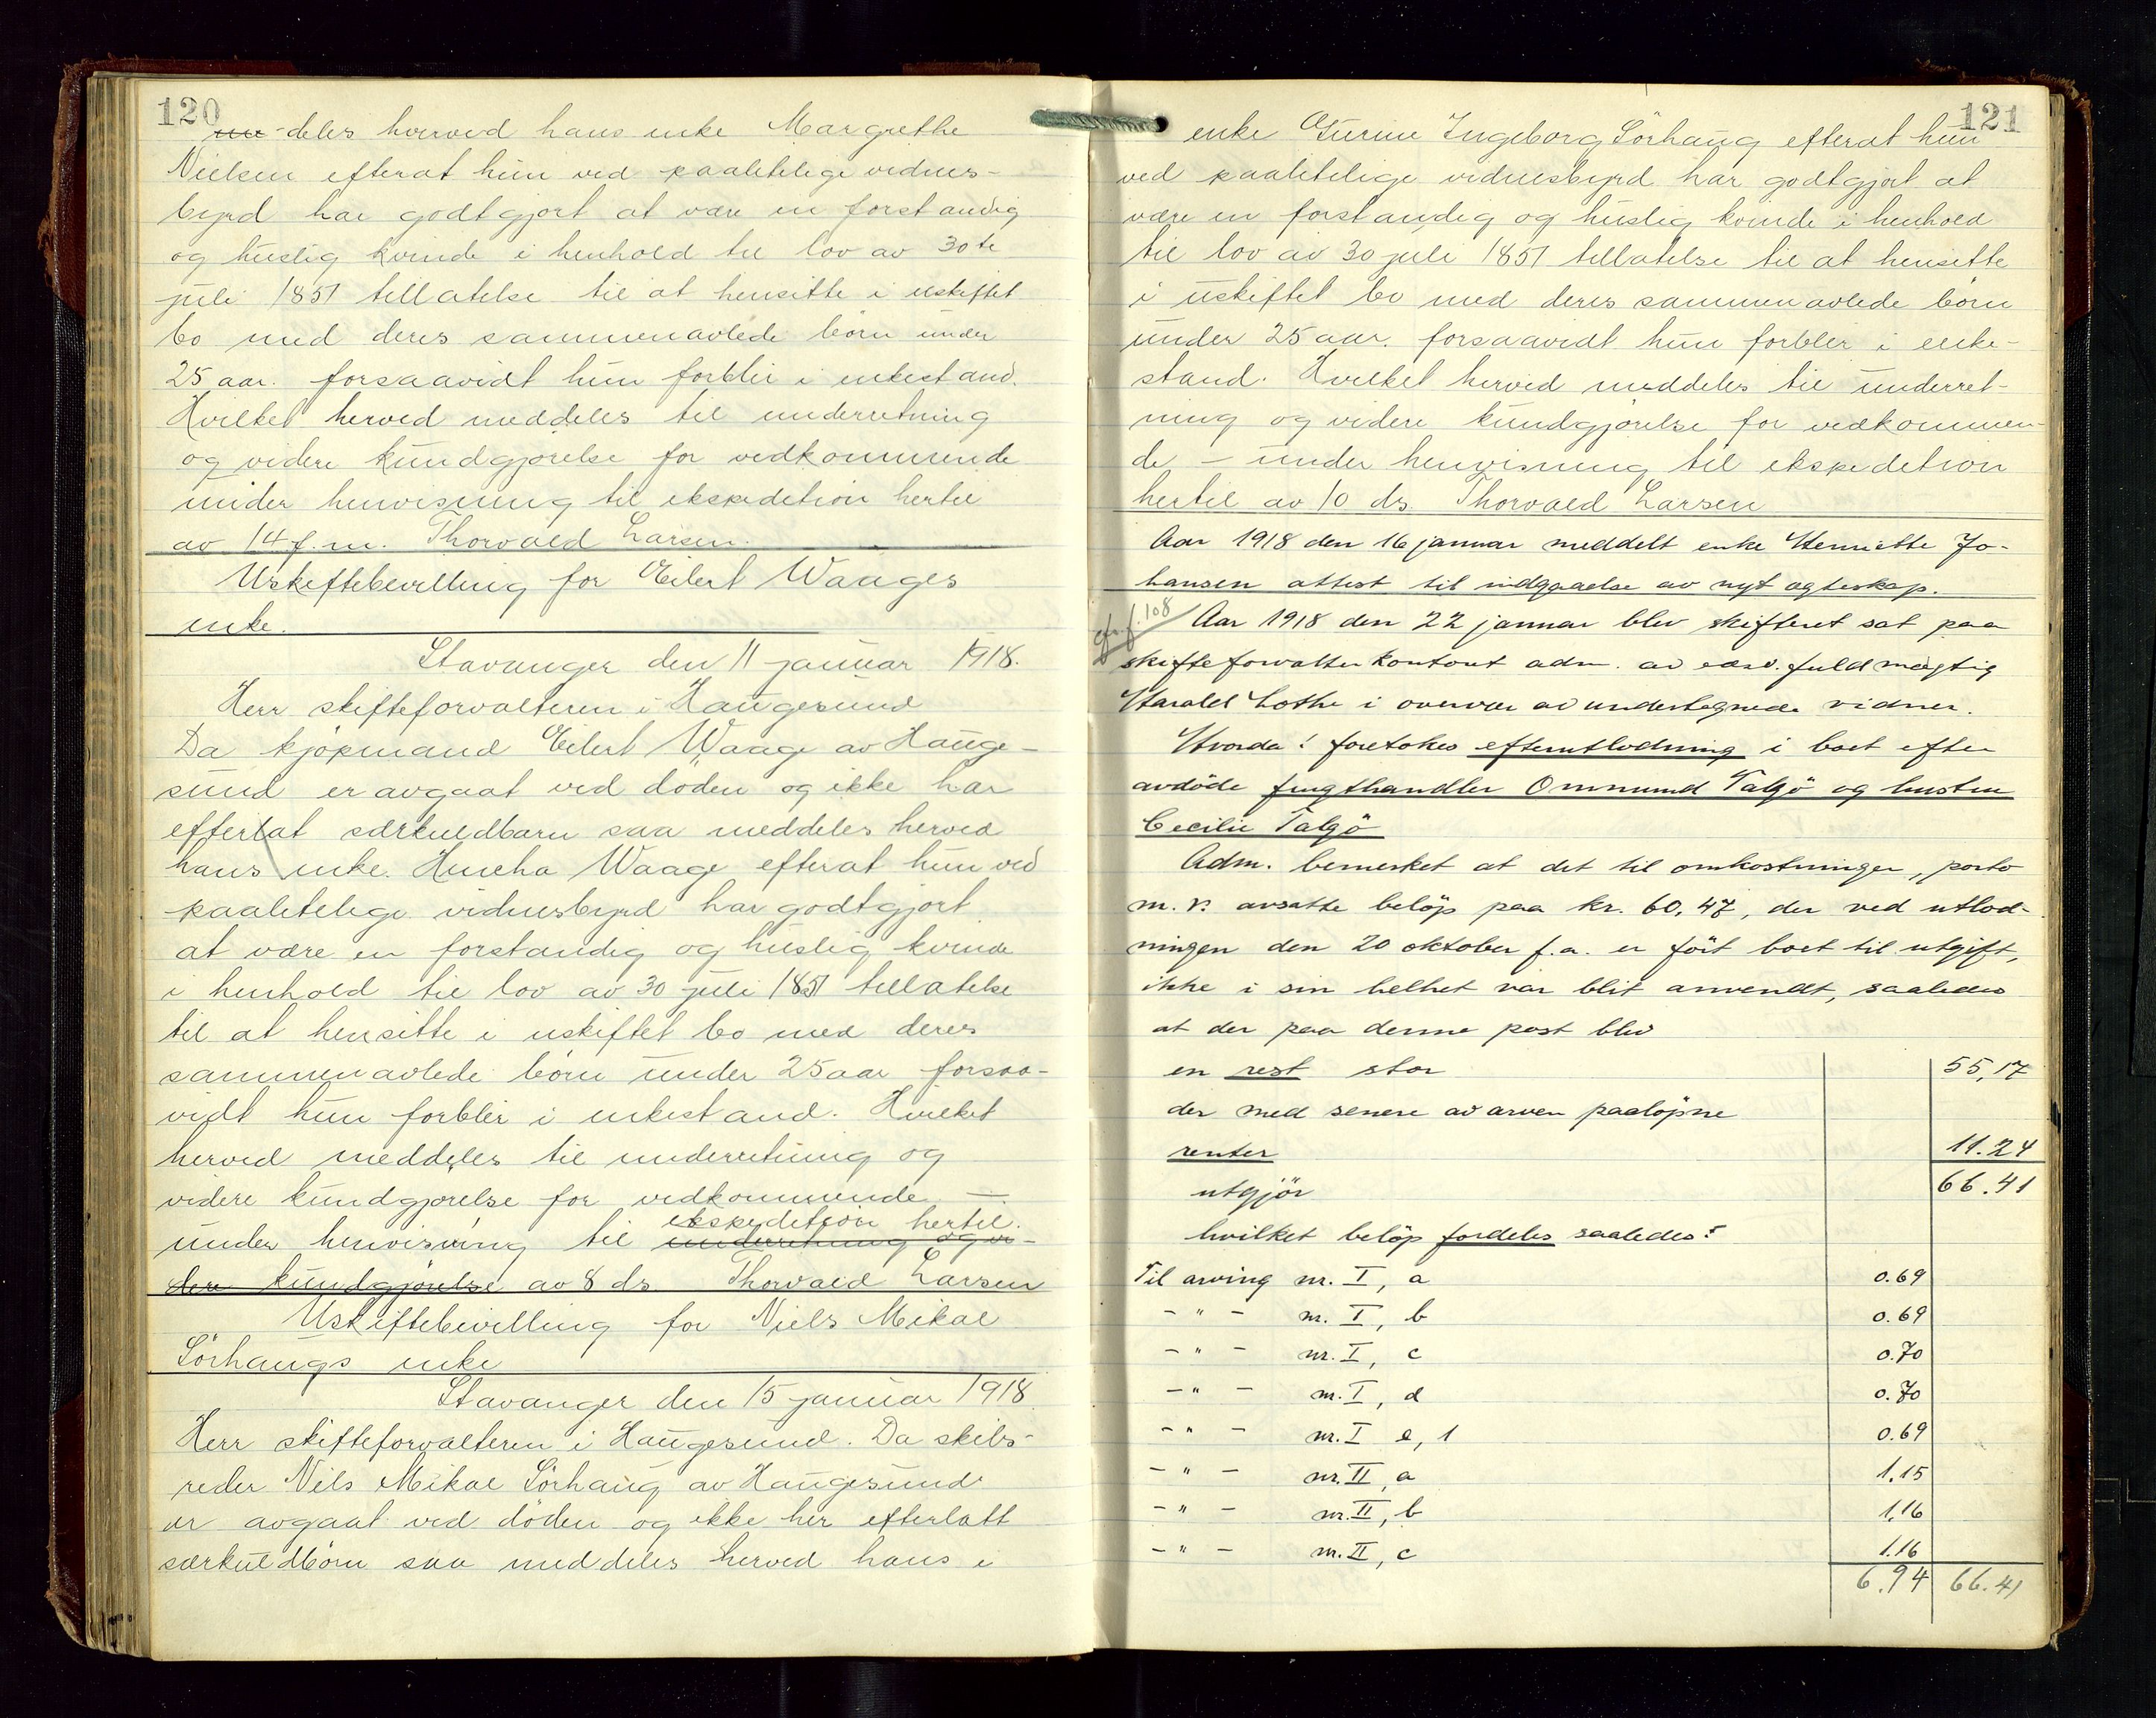 120
-deles herved hans enke Margrethe
Nielsen efterat hun ved paalitelige vidnes-
byrd har godtgjort at være en forstandig
og huslig kvinde i henhold til lov av 30te
juli 1851 tillatelse til at hensitte i uskiftet
bo med deres sammenavlede børn under
25 aar. forsaavidt hun forblir i enkestand.
Hvilket herved meddeles til underretning
og videre kundgjørelse for vedkommende
under henvisning til ekspedition hertil
av 14 f.m. Thorvald Larsen.
Uskiftebevilling for Eilert Waages
enke.
Stavanger den 11 januar 1918.
Herr skifteforvalteren i Haugesund
Da kjøpmand Eilert Waage av Hauge-
sund er avgaat ved døden og ikke har
efterlat særkuldbarn saa meddeles herved
hans enke Waage efterat hun ved
paalitelige vidnesbyrd har godtgjort
at være en forstandig og huslig kvinde
i henhold til lov av 30 juli 1851 tillatelse
til at hensitte i uskiftet bo med deres
sammenavlede børn under 25 aar forsaa-
vidt hun forblir i enkestand. Hvilket
herved meddeles til underretning og
videre kundgjørelse for vedkommende —
ekspedition hertil.
under henvisning til underretning og vi-
dere kundgjørelse av 8 ds. Thorvald Larsen
Uskiftebevilling for Niels Mikal
Sørhaugs enke
Stavanger den 15 januar 1918
Herr skifteforvalteren i Haugesund. Da skibs-
reder Nils Mikal Sørhaug av Haugesund
er avgaat ved døden og ikke her efterlatt
særkuldbørn saa meddeles herved hans e
121
enke Gurine Ingeborg Sørhaug efterat hun
ved paalitelige vidnesbyrd har godtgjort at
være en forstandig og huslig kvinde i henhold
til lov av 30 juli 1851 tillatelse til at hensitte
i uskiftet bo med deres sammenavlede børn
under 25 aar. forsaavidt hun forblir i enke-
stand. Hvilket herved meddeles til underret-
ning og videre kundgjørelse for vedkommen-
de — under henvisning til ekspedition
hertil av 10 ds. Thorvald Larsen
Aar 1918 den 16 januar meddelt enke Henriette Jo-
hansen attest til indgaaelse av nyt egteskap.
cfr. f. 108
Aar 1918 den 22 januar blev skifteret sat paa
skifteforvalterkontoret adm. av edsv. fuldmægtig
Harald Lothe i overvær av undertegnede vidner.
Hvorda: foretokes efterutlodning i boet efter
avdöde frugthandler Ommund Talgö og hustru
Cecilie Talgö
Adm. bemerket at det til omkostninger, porto
m. v. avsatte belöp paa kr. 60,47, der ved utlod-
ningen den 20 oktober f.a. er fört boet til utgift,
ikke i sin helhet var blit anvendt, saaledes
at der paa denne post blev
en rest stor 55,17
der med senere av arven paalöpne
renter 11.24
utgjör 66.41
hvilket belöp fordeles saaledes:
Til arving nr. I, a 0.69
- " - nr. I, b 0.69
- " - nr. I, c 0.70
- " - nr. I, d 0.70
- " - nr. I e, 1 0.69
- " - nr. II, a 1,15
- " - nr. II, b 1,16
- " - nr. II, c 1.16
6.94 66.41